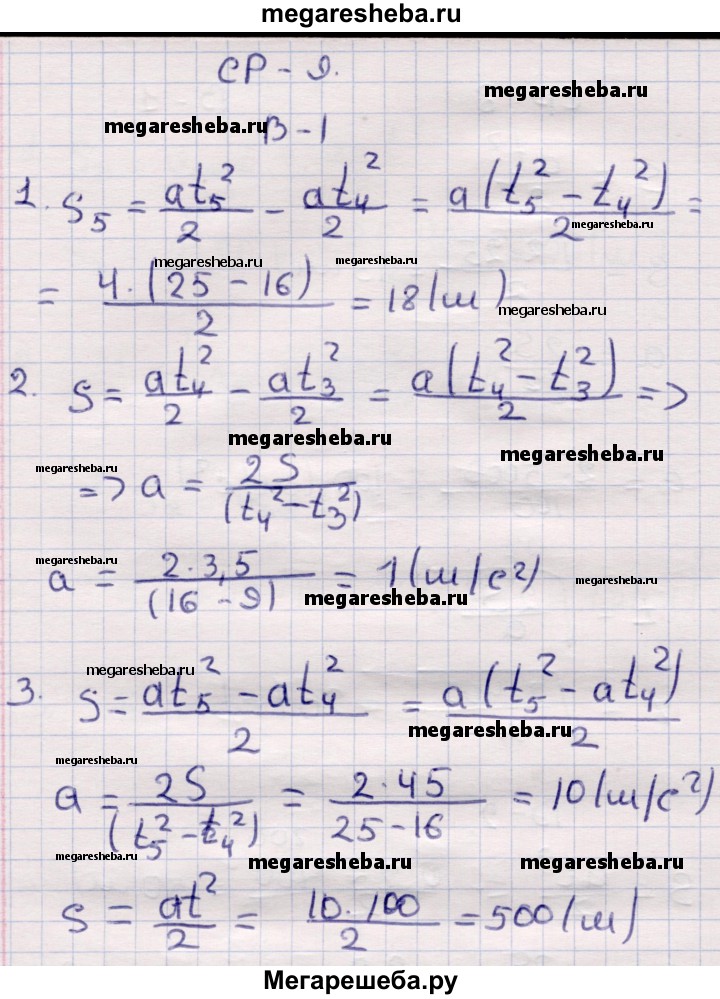 megaresheba.ru
СР - 9.
megaresheba.ru
megaresheba.ru В - 1
1. S₅ = at₅²/2 - at₄²/2 = a(t₅² - t₄²)/2 =
megaresheba.ru
megaresheba.ru megaresheba.ru
= 4·(25 - 16)/2 = 18 (м)
megaresheba.ru
2. S = at₄²/2 - at₃²/2 = a(t₄² - t₃²)/2 =>
megaresheba.ru
megaresheba.ru
megaresheba.ru
=> a = 2S/(t₄² - t₃²)
megaresheba.ru
a = 2·3,5/(16 - 9) = 1 (м/с²)
megaresheba.ru
megaresheba.ru
megaresheba.ru
3. S = at₅² - at₄²/2 = a(t₅² - at₄²)/2
megaresheba.ru
megaresheba.ru
a = 2S/(t₅² - t₄²) = 2·45/25 - 16 = 10 (м/с²)
megaresheba.ru megaresheba.ru megaresheba.ru
S = at²/2 = 10·100/2 = 500 (м)
Мегарешеба.ру